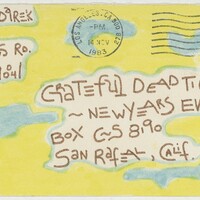 REX
S RO.
9041
LOS ANGELES, CA 900 #22
-PM-
14 NOV
1983
GRATEFUL DEAD TI
~ NEW YEARS EV
BOX C-S 8190
SAN RAFAEL, CALIF.